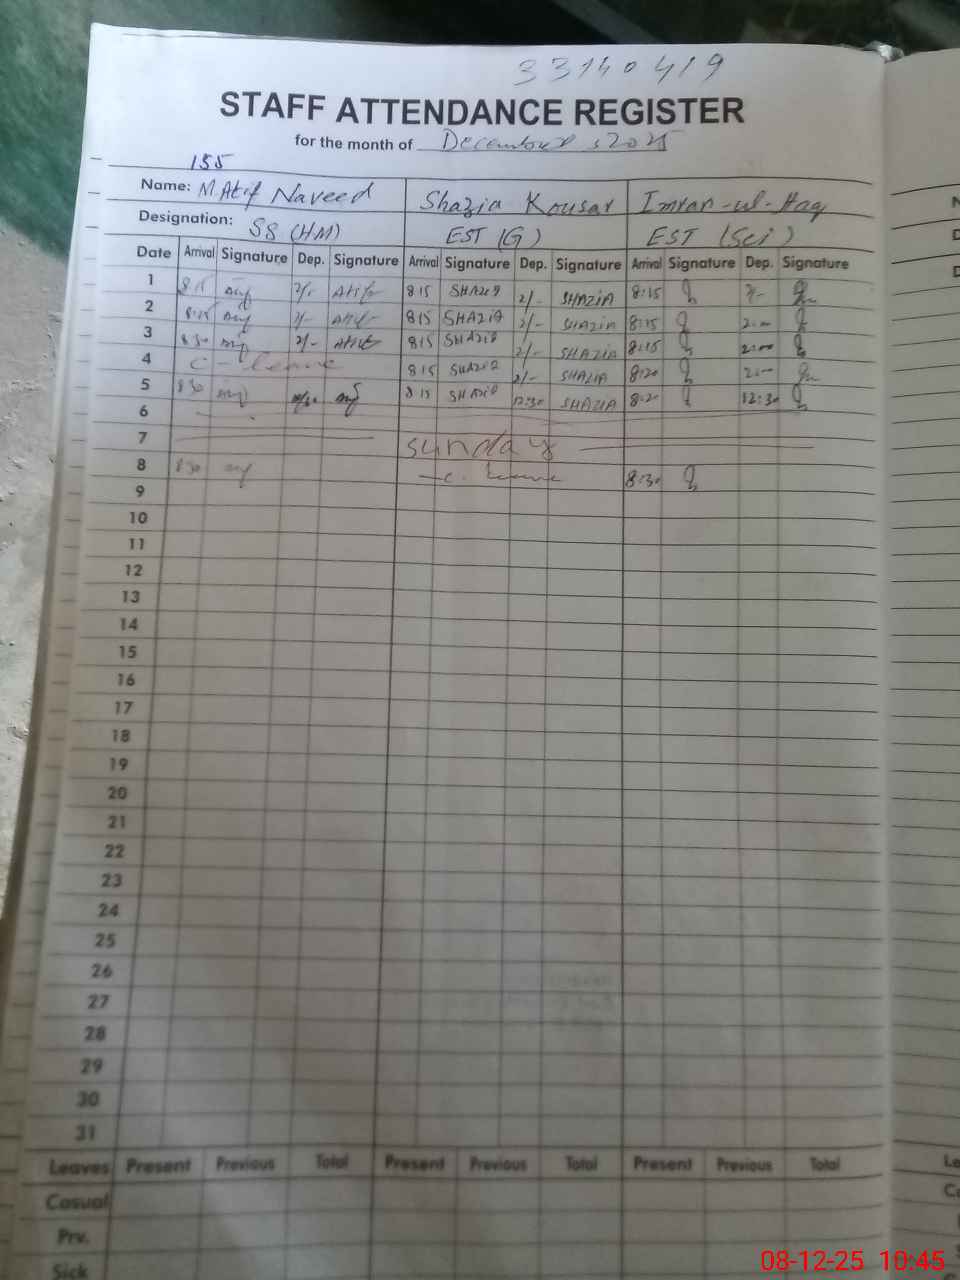 33140419
STAFF ATTENDANCE REGISTER
for the month of December, 2025
155
Name: M.Atif Naveed Shazia Kousar Imran-ul-Haq
Designation: SS (HM) EST (G) EST (Sci)
Date Arrival Signature Dep. Signature Arrival Signature Dep. Signature Arrival Signature Dep. Signature
1 815 2/- Atif 815 SHAZIA 2/- SHAZIA 8:15 2/-
2 8:15 2/- Atif 815 SHAZIA 2/- SHAZIA 8:15 2:00
3 830 2/- Atif 815 SHAZIA 2/- SHAZIA 8:15 2:00
4 C-leave 815 SHAZIA 2/- SHAZIA 8:20 2:00
5 830 815 SHAZIA 12:30 SHAZIA 8:20 12:30
6
7 Sunday
8 830 C. leave 8:30
9
10
11
12
13
14
15
16
17
18
19
20
21
22
23
24
25
26
27
28
29
30
31
Leaves Present Previous Total Present Previous Total Present Previous Total
Casual
Prv.
Sick
08-12-25 10:45